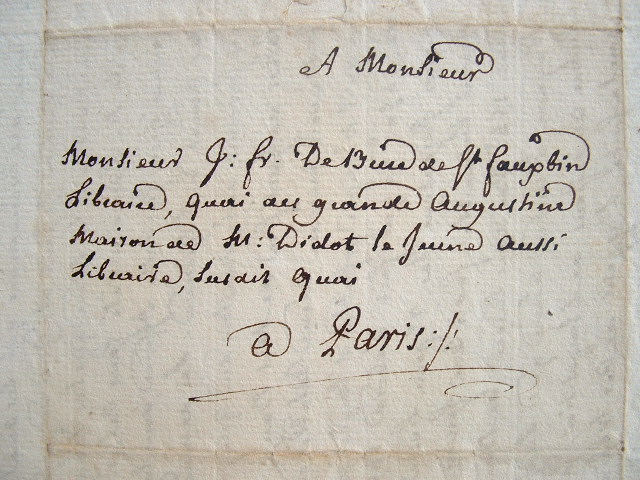 A Monsieur
Monsieur J: fr. De Bure de St fauxbin
Libraire, quai des grands Augustins
Maison de M: Didot le Jeune aussi
Libraire, susdit quai
a Paris:/.